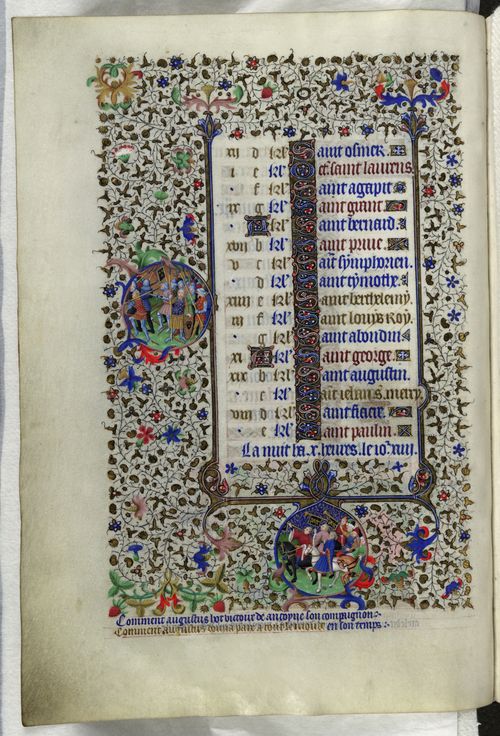 xi d kl' Saint osmer.
i e kl' Oct' saint laurens.
f kl' Saint agapit
ix g kl' Saint giant
A kl' Saint bernard.
xvii b kl' Saint priue
vi c kl' Saint symphorien.
d kl' Saint tymothe.
xiiii e kl' Saint berthelemy.
iii f kl' Saint louys Roy.
g kl' Saint abondin.
xi A kl' Saint george.
xix b kl' Saint augustin.
c kl' Saint iehan s. mery
viii d kl' Saint fiacre.
e kl' Saint paulin.
La nuit ha .x. heures. le iour .xiiii.
Comment augustus hot victoire de antoyne son compagnon:
Comment augustus donna paix a tout le monde en son temps: